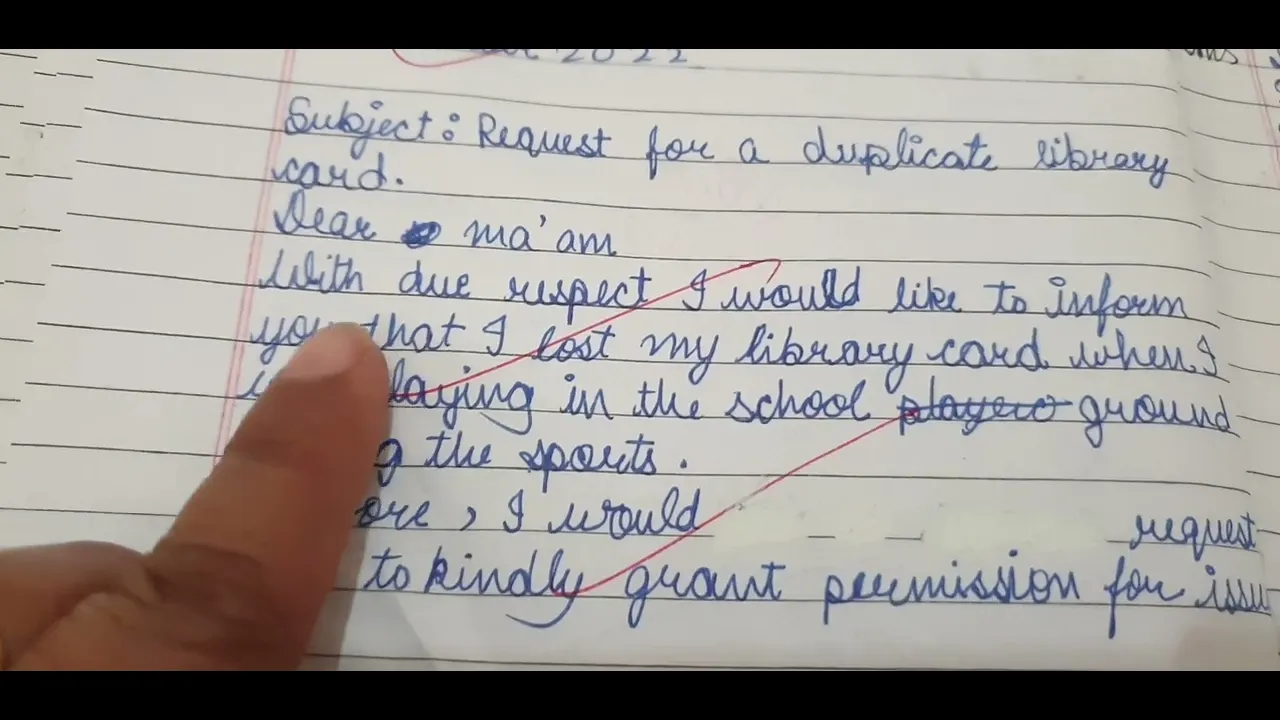 2022
Subject: Request for a duplicate library
card.
Dear ma'am
With due respect I would like to inform
you that I lost my library card when I
laying in the school playero ground
g the sports.
ore, I would request
to kindly grant permission for issu